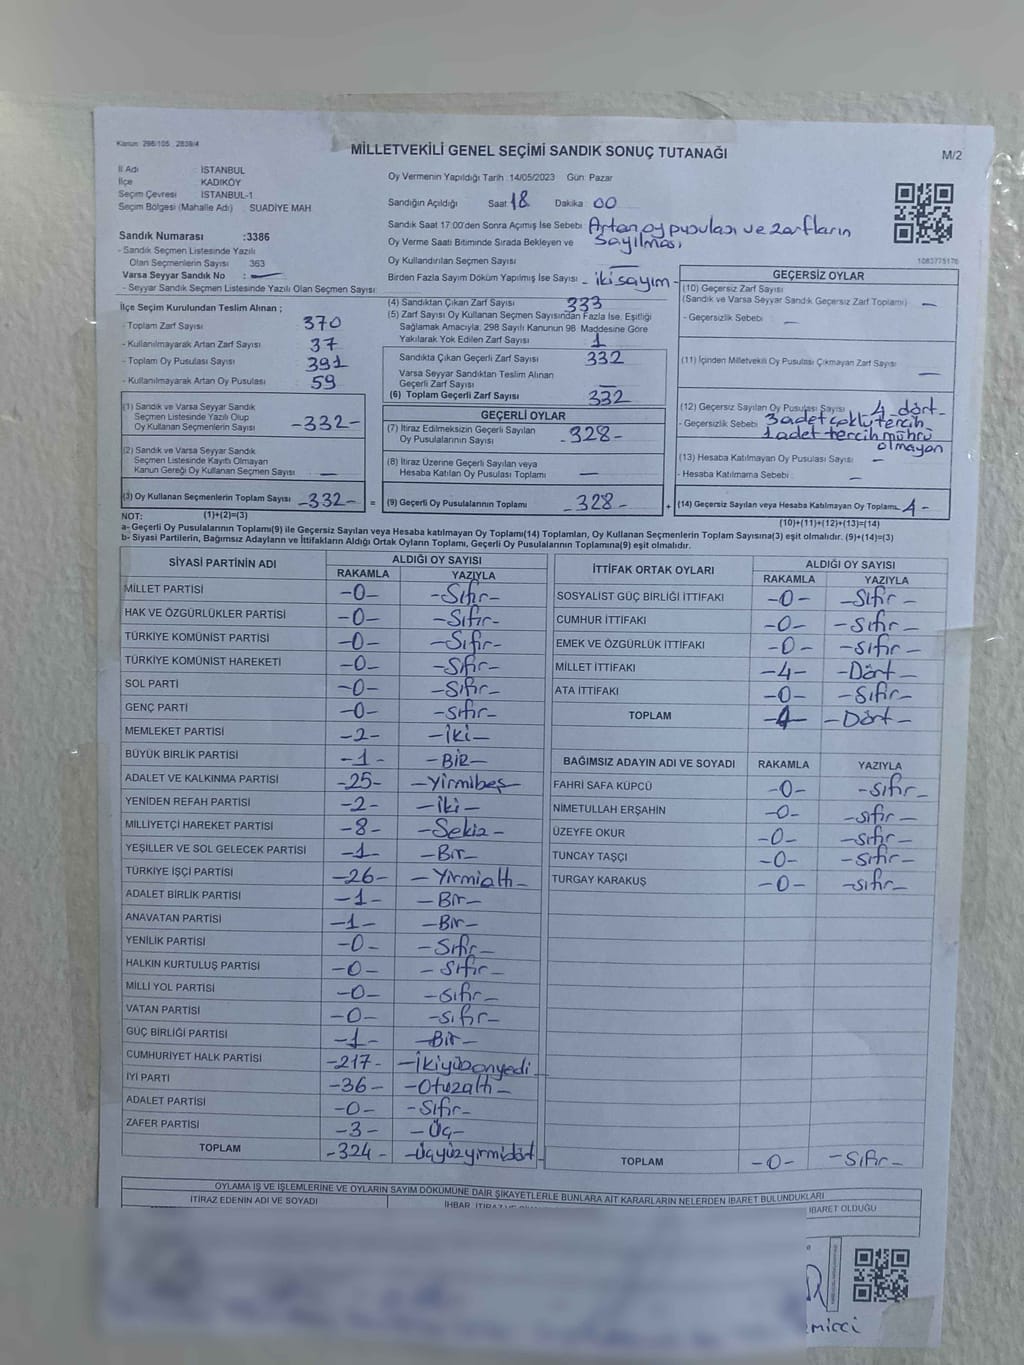 Kanun: 298/105 2839/4
MİLLETVEKİLİ GENEL SEÇİMİ SANDIK SONUÇ TUTANAĞI
M/2
İl Adı : İSTANBUL
İlçe : KADIKÖY
Seçim Çevresi : İSTANBUL-1
Seçim Bölgesi (Mahalle Adı) : SUADİYE MAH
Sandık Numarası :3386
- Sandık Seçmen Listesinde Yazılı
Olan Seçmenlerin Sayısı 363
Varsa Seyyar Sandık No : —
- Seyyar Sandık Seçmen Listesinde Yazılı Olan Seçmen Sayısı
Oy Vermenin Yapıldığı Tarih :14/05/2023 Gün: Pazar
Sandığın Açıldığı Saat 18 Dakika : 00
Sandık Saat 17:00'den Sonra Açımış İse Sebebi : Artan oy pusulası ve zarfların
sayılması
Oy Verme Saati Bitiminde Sırada Bekleyen ve
Oy Kullandırılan Seçmen Sayısı —
Birden Fazla Sayım Döküm Yapılmış İse Sayısı - iki sayım -
1083775176
İlçe Seçim Kurulundan Teslim Alınan ;
- Toplam Zarf Sayısı 370
- Kullanılmayarak Artan Zarf Sayısı 37
- Toplam Oy Pusulası Sayısı 391
- Kullanılmayarak Artan Oy Pusulası 59
(1) Sandık ve Varsa Seyyar Sandık
Seçmen Listesinde Yazılı Olup
Oy Kullanan Seçmenlerin Sayısı -332-
(2) Sandık ve Varsa Seyyar Sandık
Seçmen Listesinde Kayıtlı Olmayan
Kanun Gereği Oy Kullanan Seçmen Sayısı —
(3) Oy Kullanan Seçmenlerin Toplam Sayısı -332- =
(4) Sandıktan Çıkan Zarf Sayısı 333
(5) Zarf Sayısı Oy Kullanan Seçmen Sayısından Fazla İse, Eşitliği
Sağlamak Amacıyla, 298 Sayılı Kanunun 98. Maddesine Göre
Yakılarak Yok Edilen Zarf Sayısı 1
Sandıkta Çıkan Geçerli Zarf Sayısı 332
Varsa Seyyar Sandıktan Teslim Alınan
Geçerli Zarf Sayısı —
(6) Toplam Geçerli Zarf Sayısı 332
GEÇERLİ OYLAR
(7) İtiraz Edilmeksizin Geçerli Sayılan
Oy Pusulalarının Sayısı -328-
(8) İtiraz Üzerine Geçerli Sayılan veya
Hesaba Katılan Oy Pusulası Toplamı —
(9) Geçerli Oy Pusulalarının Toplamı -328- +
GEÇERSİZ OYLAR
(10) Geçersiz Zarf Sayısı
(Sandık ve Varsa Seyyar Sandık Geçersiz Zarf Toplamı) —
- Geçersizlik Sebebi : —
(11) İçinden Milletvekili Oy Pusulası Çıkmayan Zarf Sayısı —
(12) Geçersiz Sayılan Oy Pusulası Sayısı 4 - dört -
- Geçersizlik Sebebi : 3 adet çoklu tercih
1 adet tercih mührü
olmayan
(13) Hesaba Katılmayan Oy Pusulası Sayısı —
- Hesaba Katılmama Sebebi : —
(14) Geçersiz Sayılan veya Hesaba Katılmayan Oy Toplamı - 4 -
NOT: (1)+(2)=(3)
(10)+(11)+(12)+(13)=(14)
a- Geçerli Oy Pusulalarının Toplamı(9) ile Geçersiz Sayılan veya Hesaba katılmayan Oy Toplamı(14) Toplamları, Oy Kullanan Seçmenlerin Toplam Sayısına(3) eşit olmalıdır. (9)+(14)=(3)
b- Siyasi Partilerin, Bağımsız Adayların ve İttifakların Aldığı Ortak Oyların Toplamı, Geçerli Oy Pusulalarının Toplamına(9) eşit olmalıdır.
SİYASİ PARTİNİN ADI ALDIĞI OY SAYISI
RAKAMLA YAZIYLA
MİLLET PARTİSİ -0- -Sıfır-
HAK VE ÖZGÜRLÜKLER PARTİSİ -0- -Sıfır-
TÜRKİYE KOMÜNİST PARTİSİ -0- -Sıfır-
TÜRKİYE KOMÜNİST HAREKETİ -0- -Sıfır-
SOL PARTİ -0- -Sıfır-
GENÇ PARTİ -0- -Sıfır-
MEMLEKET PARTİSİ -2- -İki-
BÜYÜK BİRLİK PARTİSİ -1- -BİR-
ADALET VE KALKINMA PARTİSİ -25- -Yirmibeş-
YENİDEN REFAH PARTİSİ -2- -İki-
MİLLİYETÇİ HAREKET PARTİSİ -8- -Sekiz-
YEŞİLLER VE SOL GELECEK PARTİSİ -1- -Bir-
TÜRKİYE İŞÇİ PARTİSİ -26- -Yirmialtı-
ADALET BİRLİK PARTİSİ -1- -Bir-
ANAVATAN PARTİSİ -1- -Bir-
YENİLİK PARTİSİ -0- -Sıfır-
HALKIN KURTULUŞ PARTİSİ -0- -Sıfır-
MİLLİ YOL PARTİSİ -0- -sıfır-
VATAN PARTİSİ -0- -sıfır-
GÜÇ BİRLİĞİ PARTİSİ -1- -Bir-
CUMHURİYET HALK PARTİSİ -217- -İkiyüzonyedi-
İYİ PARTİ -36- -Otuzaltı-
ADALET PARTİSİ -0- -Sıfır-
ZAFER PARTİSİ -3- -Üç-
TOPLAM -324- -Üçyüzyirmidört-
İTTİFAK ORTAK OYLARI ALDIĞI OY SAYISI
RAKAMLA YAZIYLA
SOSYALİST GÜÇ BİRLİĞİ İTTİFAKI -0- -Sıfır-
CUMHUR İTTİFAKI -0- -Sıfır-
EMEK VE ÖZGÜRLÜK İTTİFAKI -0- -sıfır-
MİLLET İTTİFAKI -4- -Dört-
ATA İTTİFAKI -0- -Sıfır-
TOPLAM -4- -Dört-
BAĞIMSIZ ADAYIN ADI VE SOYADI RAKAMLA YAZIYLA
FAHRİ SAFA KÜPCÜ -0- -sıfır-
NİMETULLAH ERŞAHİN -0- -sıfır-
ÜZEYFE OKUR -0- -sıfır-
TUNCAY TAŞÇI -0- -sıfır-
TURGAY KARAKUŞ -0- -sıfır-
TOPLAM -0- -Sıfır-
OYLAMA İŞ VE İŞLEMLERİNE VE OYLARIN SAYIM DÖKÜMÜNE DAİR ŞİKAYETLERLE BUNLARA AİT KARARLARIN NELERDEN İBARET BULUNDUKLARI
İTİRAZ EDENİN ADI VE SOYADI
İBARET OLDUĞU